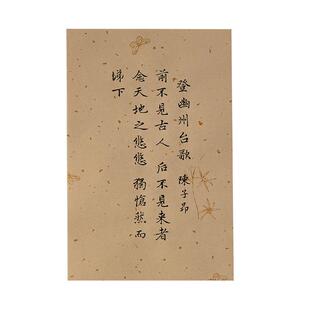 登幽州台歌 陳子昂
前不見古人 后不見来者
念天地之悠悠 獨愴然而
涕下